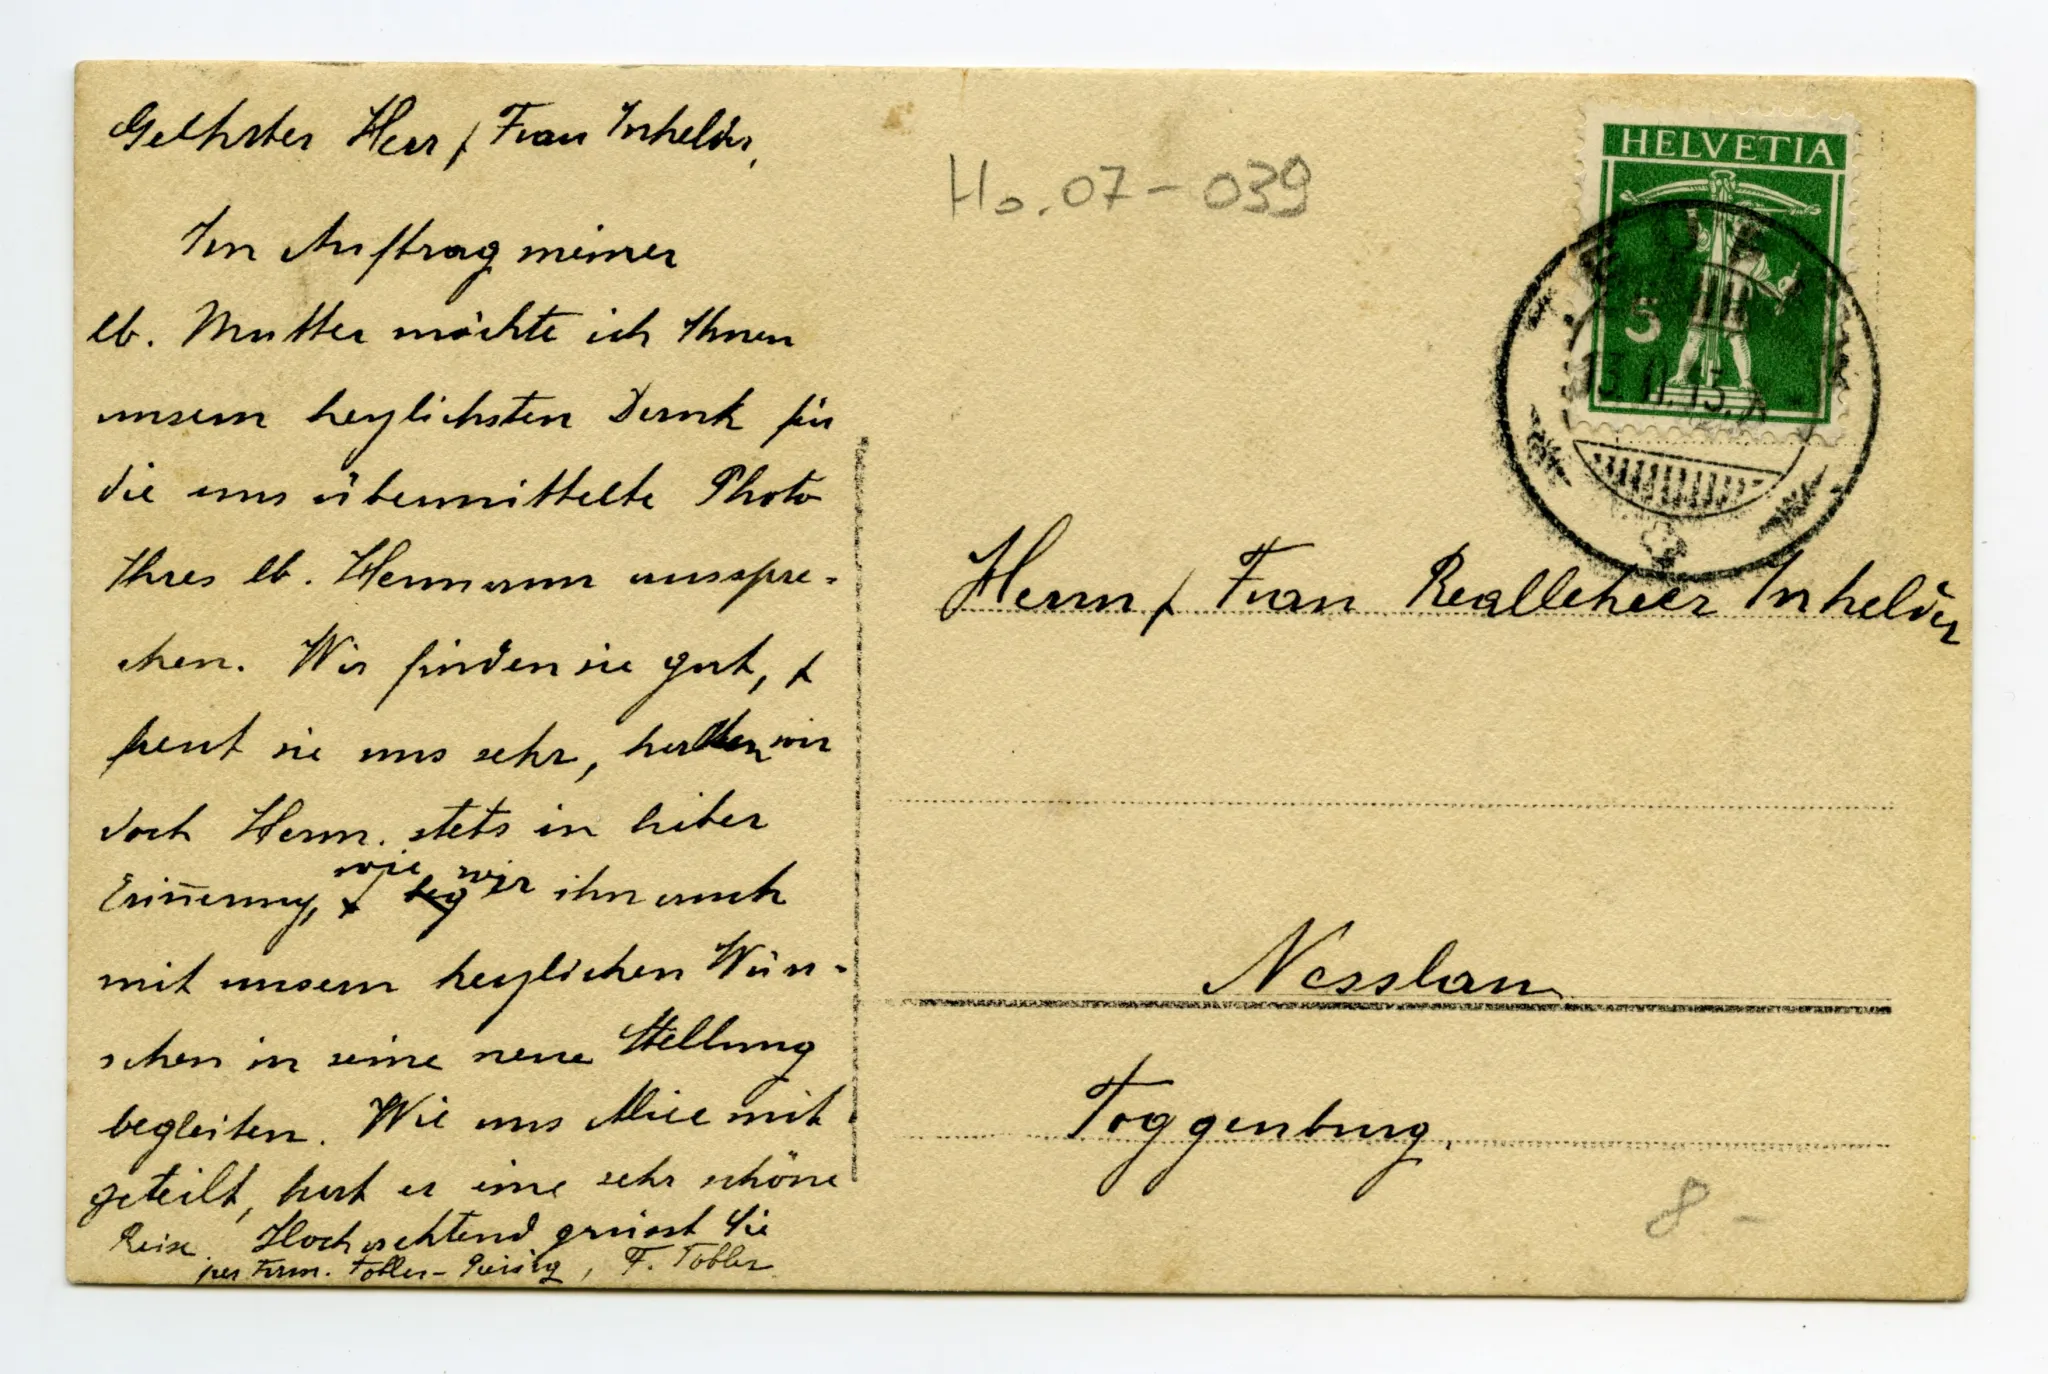 Geehrter Herr & Frau Inhelder,
Im Auftrag meiner
lb. Mutter möchte ich Ihnen
unsern herzlichsten Dank für
die uns übermittelte Photo
Ihres lb. Hermann ausspre-
chen. Wir finden sie gut, &
freut sie uns sehr, halten wir
doch Herm. stets in lieber
Erinnerung, wie wir ihn auch
mit unsern herzlichen Wün-
schen in seine neue Stellung
begleiten. Wie uns Alice mit
geteilt, hat er eine sehr schöne
Reise. Hochachtend grüsst Sie
per Fam. Tobler- , F. Tobler
Ho. 07-039
HELVETIA
5
Herrn & Frau Reallehrer Inhelder
Nesslau
Toggenburg.
8.-